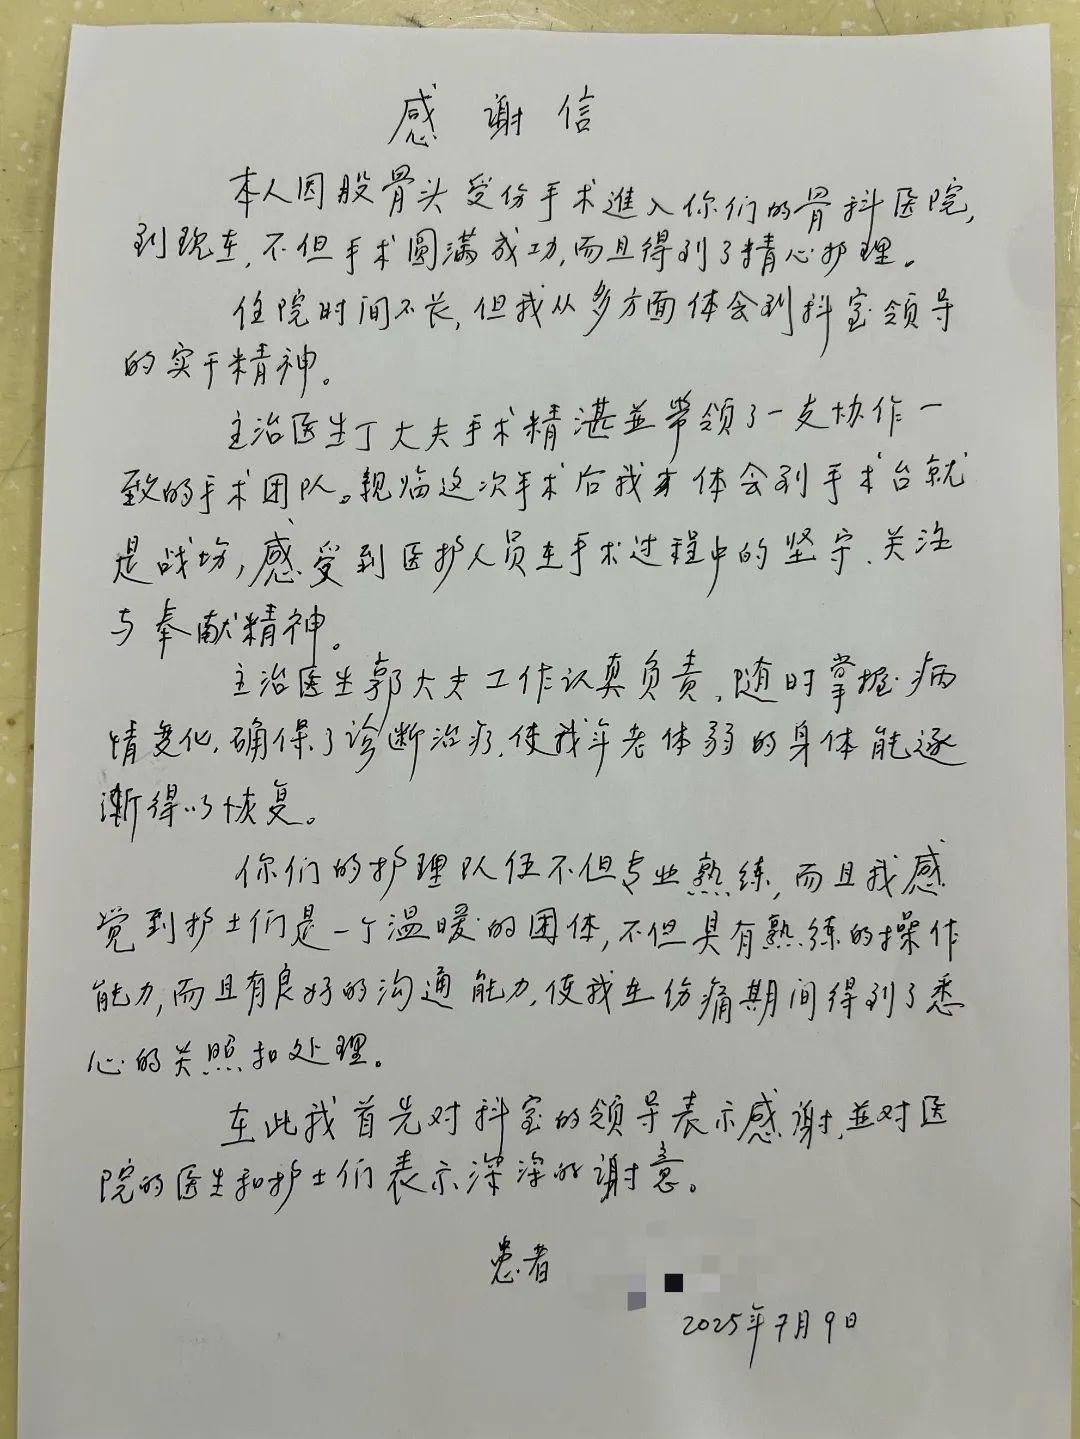 感谢信
本人因股骨头受伤手术進入你们的骨科医院,
到现在,不但手术圆满成功,而且得到了精心护理。
住院时间不长,但我从多方面体会到科室领导
的实干精神。
主治医生丁大夫手术精湛並带领了一支协作一
致的手术团队。亲临这次手术后我才体会到手术台就
是战场,感受到医护人员在手术过程中的坚守、关注
与奉献精神。
主治医生郭大夫工作认真负责,随时掌握病
情变化,确保了诊断治疗,使我年老体弱的身体能逐
渐得以恢复。
你们的护理队伍不但专业熟练,而且我感
觉到护士们是一个温暖的团体,不但具有熟练的操作
能力,而且有良好的沟通能力,使我在伤痛期间得到了悉
心的关照和处理。
在此我首先对科室的领导表示感谢,並对医
院的医生和护士们表示深深的谢意。
患者
2025年7月9日